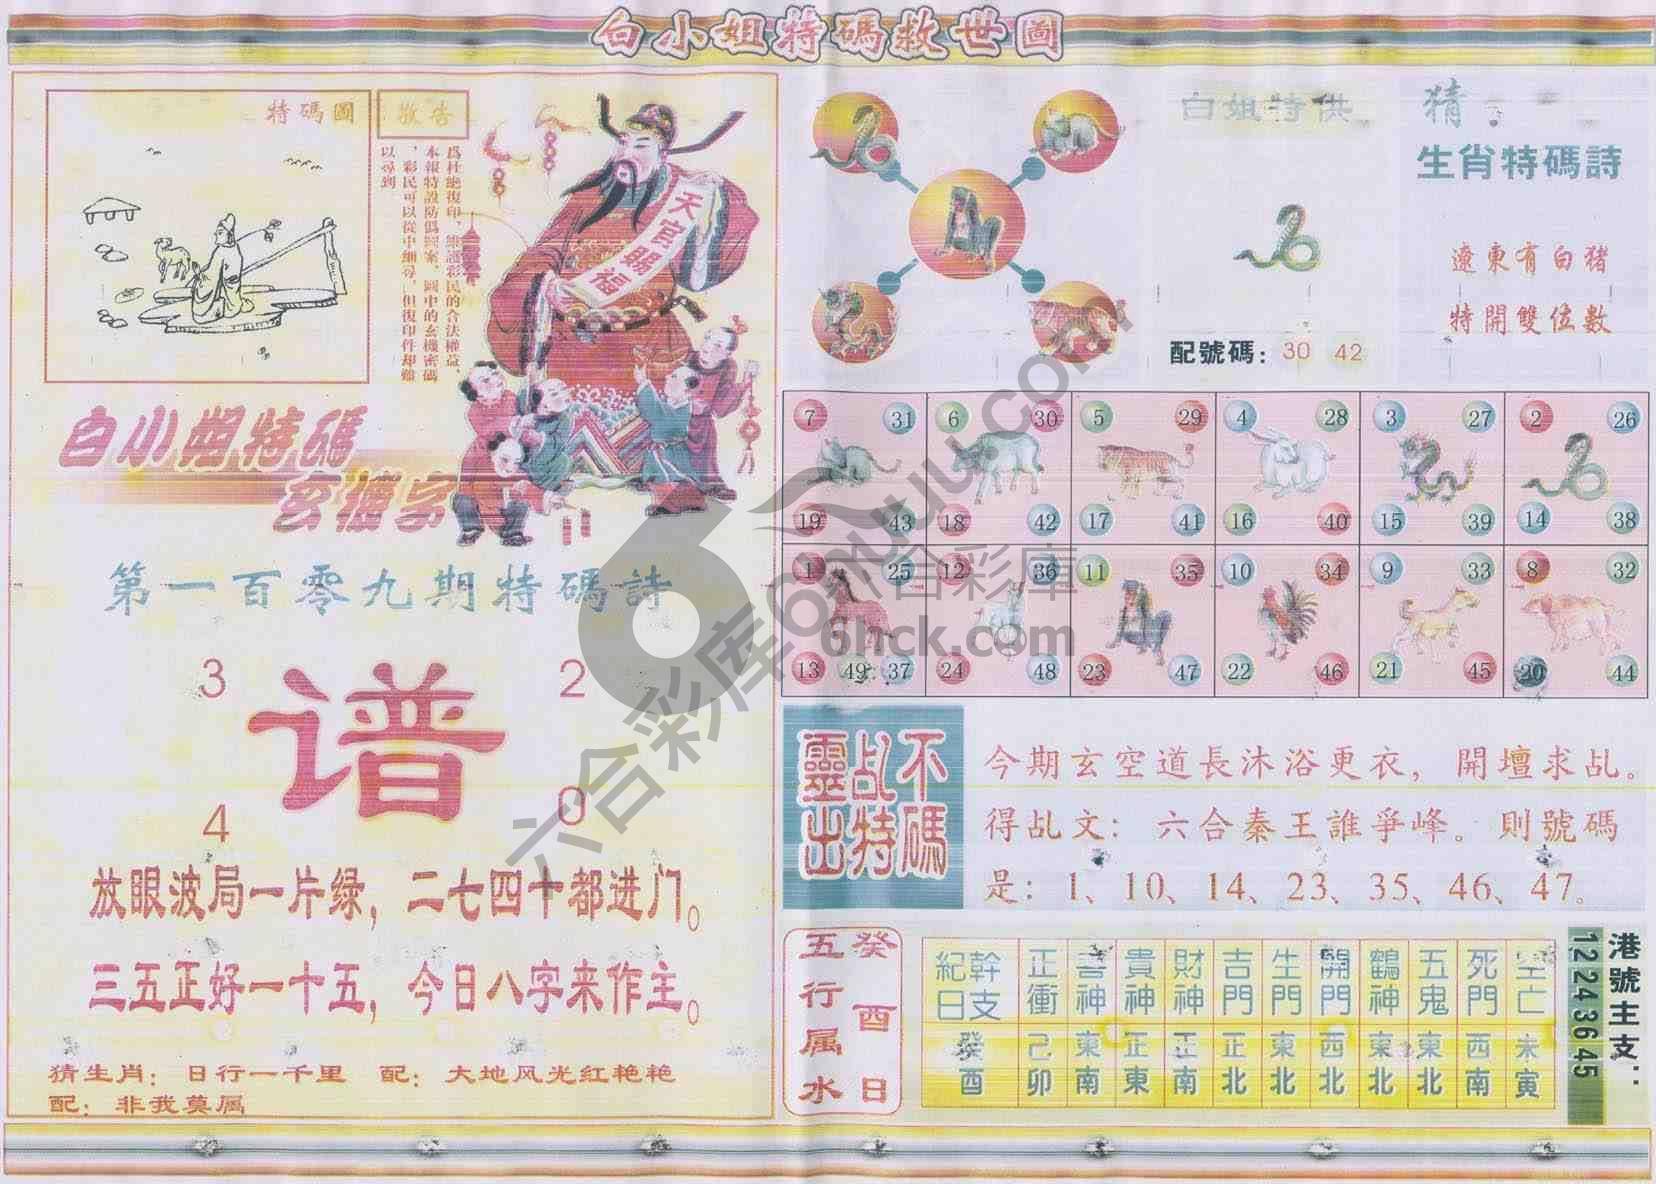 白小姐特碼救世圖
特碼圖
敬告
爲杜絕復印、維護彩民的合法權益，
本報特設防僞圖案，圖中的玄機密碼
，彩民可以從中細尋，但復印件却難
以尋到
天官賜福
白小姐特碼
玄機字
第一百零九期特碼詩
3 2
谱
4 0
放眼波局一片绿，二七四十都进门。
三五正好一十五，今日八字来作主。
猜生肖：日行一千里 配：大地风光红艳艳
配：非我莫属
白姐特供
配號碼：30 42
猜：
生肖特碼詩
遼東有白豬
特開雙位數
7 31 6 30 5 29 4 28 3 27 2 26
19 43 18 42 17 41 16 40 15 39 14 38
1 25 12 36 11 35 10 34 9 33 8 32
13 49 37 24 48 23 47 22 46 21 45 20 44
不碼
乩特
靈出
今期玄空道長沐浴更衣，開壇求乩。
得乩文：六合秦王誰爭峰。則號碼
是：1、10、14、23、35、46、47。
癸酉日
五行属水
幹支紀日 正衝 喜神 貴神 財神 吉門 生門 開門 鶴神 五鬼 死門 空亡
癸酉 己卯 東南 正東 正南 正北 東北 西北 東北 東北 西南 未寅
港號主支：
12 24 36 45
六合彩库 6hutu.com
六合彩庫
6hck.com